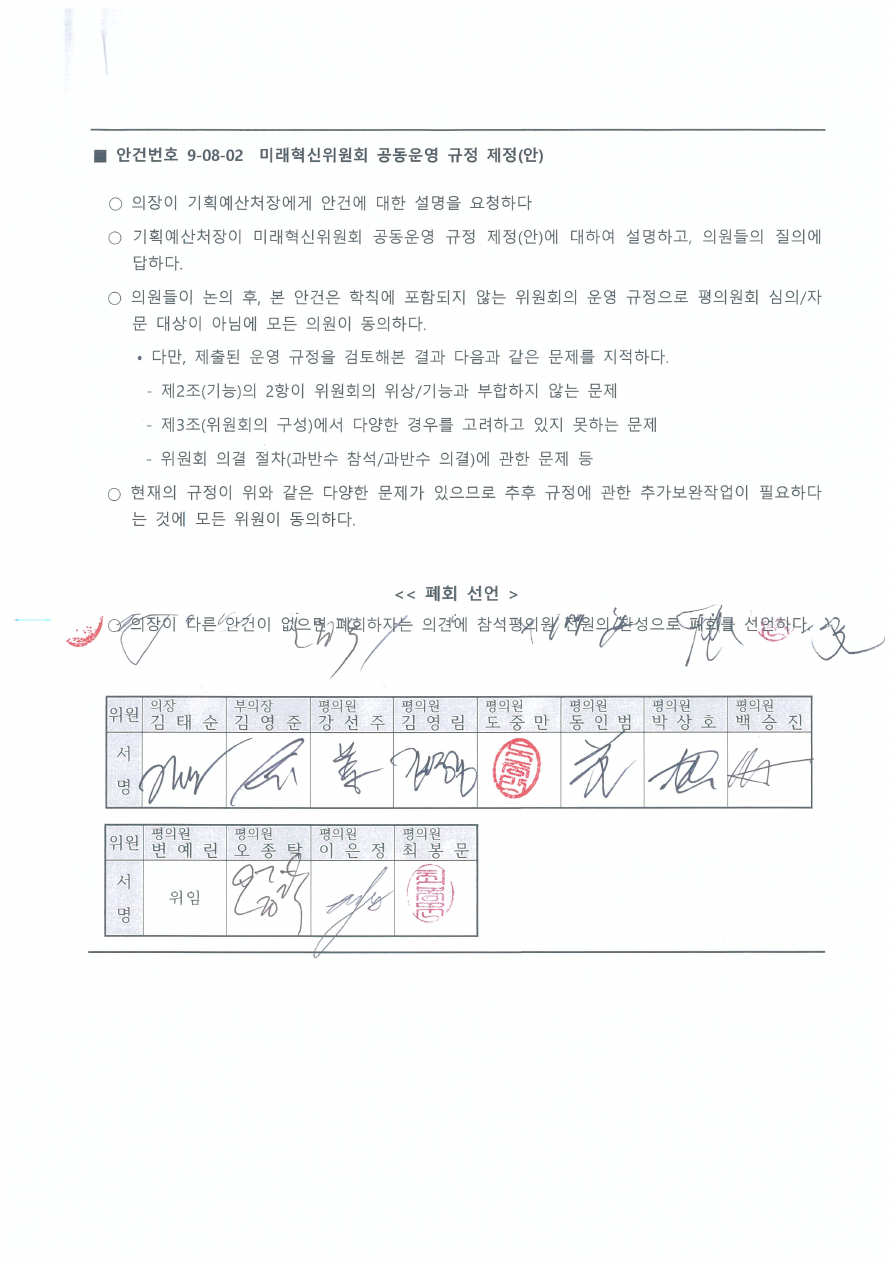 ■ 안건번호 9-08-02 미래혁신위원회 공동운영 규정 제정(안)
○ 의장이 기획예산처장에게 안건에 대한 설명을 요청하다
○ 기획예산처장이 미래혁신위원회 공동운영 규정 제정(안)에 대하여 설명하고, 의원들의 질의에
답하다.
○ 의원들이 논의 후, 본 안건은 학칙에 포함되지 않는 위원회의 운영 규정으로 평의원회 심의/자
문 대상이 아님에 모든 의원이 동의하다.
• 다만, 제출된 운영 규정을 검토해본 결과 다음과 같은 문제를 지적하다.
- 제2조(기능)의 2항이 위원회의 위상/기능과 부합하지 않는 문제
- 제3조(위원회의 구성)에서 다양한 경우를 고려하고 있지 못하는 문제
- 위원회 의결 절차(과반수 참석/과반수 의결)에 관한 문제 등
○ 현재의 규정이 위와 같은 다양한 문제가 있으므로 추후 규정에 관한 추가보완작업이 필요하다
는 것에 모든 위원이 동의하다.
<< 폐회 선언 >
○ 의장이 다른 안건이 없으면 폐회하자는 의견에 참석평의원 전원의 찬성으로 폐회를 선언하다.
위원 의장 부의장 평의원 평의원 평의원 평의원 평의원 평의원
김태순 김영준 강선주 김영림 도중만 동인범 박상호 백승진
서
명
위원 평의원 평의원 평의원 평의원
변예린 오종탁 이은정 최봉문
서 위임
명